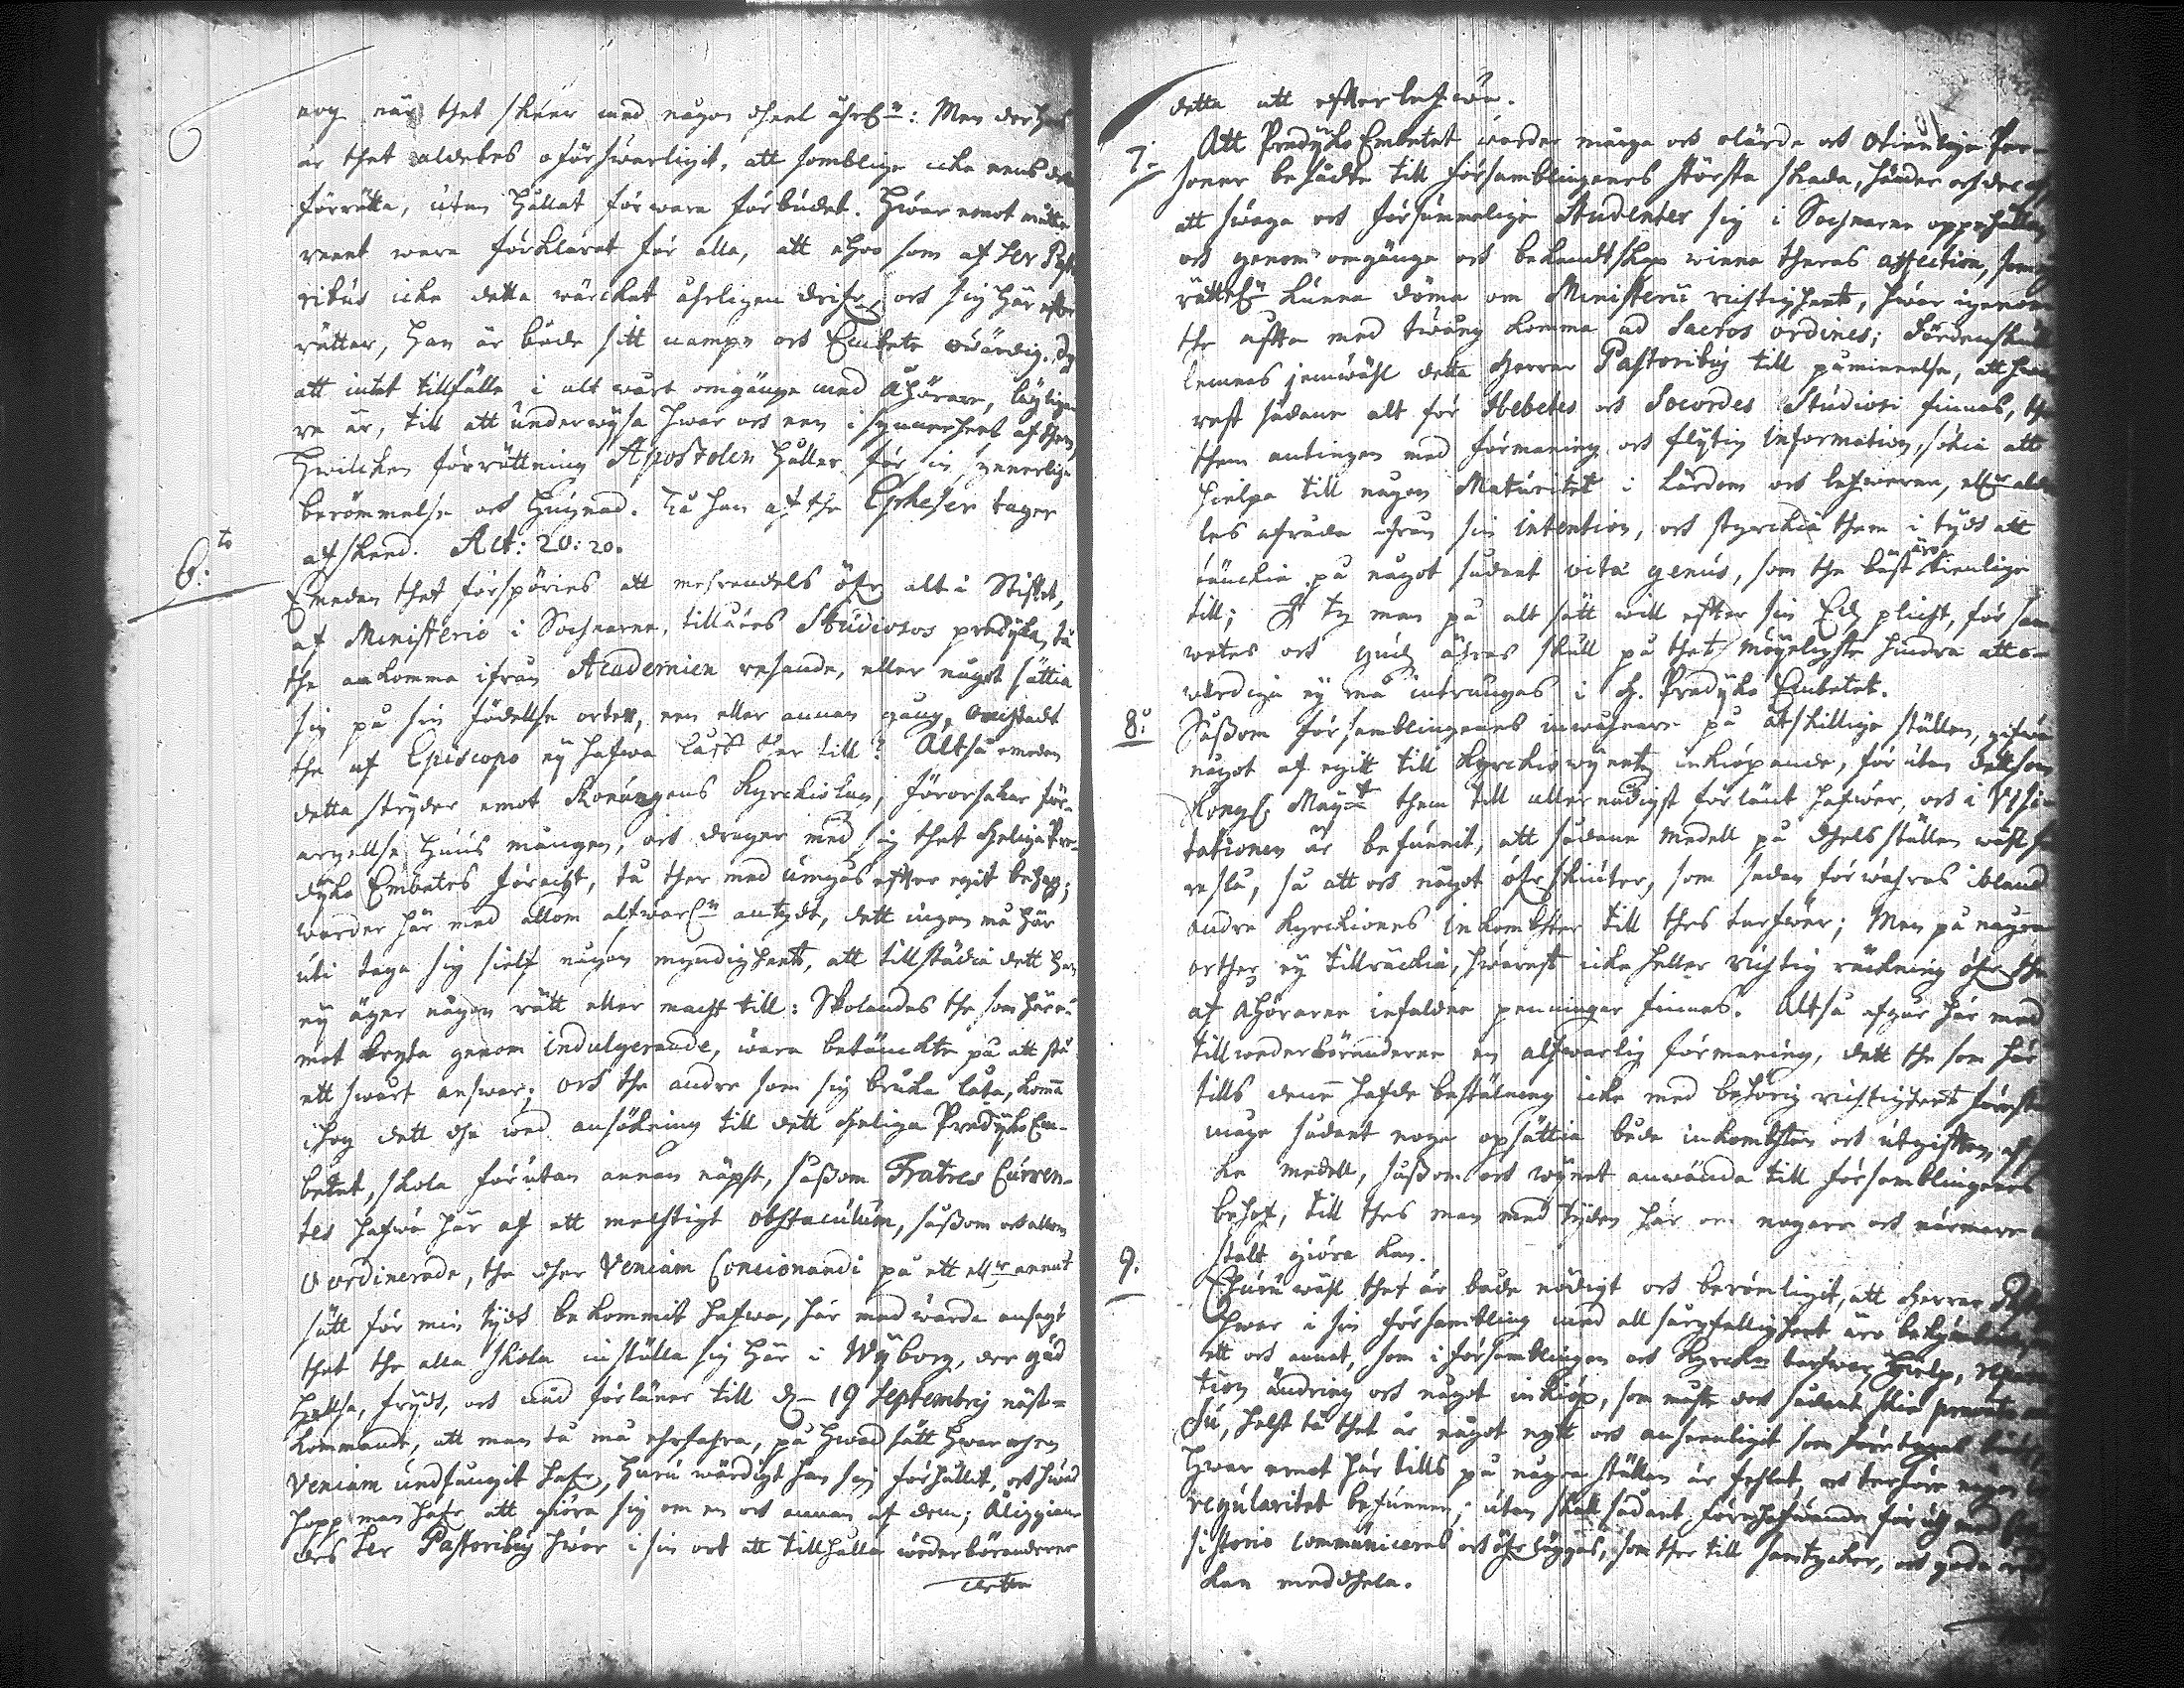 nog när thet skéer med någon dheel åhrl:n: Men der hoos
är thet aldeles oförswarligit, att somblige icke eens det
förrätta, utan hållat förwara förbudet. Hwar emot måtte
reent wara förklarat för alla, att ehoo som af Her Pasto
ribus icke detta wärcket åhrligen drifr, och sig här efter
rätter, han är både sitt nampn och Embete owärdig. Ty
att intet tillfälle i alt wårt omgänge med Åhörare, läglige
re är, till att underwysa hwar och een i synnerheet af them,
hwilcken förrättning Apostolen håller för sin ynnerlige
berömmelse och hugnad. Tå han af the Epheser tager
afskeed. Act: 20: 20.
6:to Emedan thet förspöries att mehrendels öfr alt i Stiftet,
af Ministerio i Sochnarne, tillåtes Studiosos predyka, tå
the ankomma ifrån Academien resande, eller något sättia
sig på sin födellse orten, een eller annan gång, oansedt
the af Episcopo ey hafwa låff ther till? Altså emedan
detta stryder emot Konungens Kyrckiolag, förorsakar för-
argellse huus mången, och drager med sig thet heliga Pre-
dyko Embetes föracht, tå ther med umgås efter egit behag;
warder här med allom alfwarl:n antydt, dett ingen må här
uti taga sig sielf någon myndigheet, att tillstädia dett han
ey äger någon rätt eller macht till: Skolandes the som häre-
mot bryta genom indulgerande, wara betänckte på att stå
ett swårt answar; och the andre som sig bruka låta, komma
ihog dett the wed ansökning till dett heliga Predyko Em-
betet, skola förutan annan näpst, såßom Fratres Curren-
tes hafwa här af ett mechtigt obstaculum, såßom och allom
Oordinerade, the dher Veniam Concionandi på ett ellr annat
sätt för min tydh bekommit hafwa, här med warde ansagt
thet the alla skola inställa sig här i Wyborg, der gud
hellsa, frydh, och nåd förläner till d. 19 Septembris näst-
kommande, att man tå må ehrfahra, på hwad sätt hwar och en
Veniam undfångit hafr, huru wärdigt han sig förhållit, och hwad
hopp man hafr att giöra sig om en och annan af dem; Åliggian-
des Her Pastoribus hwar i sin ort att tillhålla wederböranderne
detta
detta att efterlefwa.
7: Att Predyko Embetet warder många och olärde och otienlige Per-
soner besådt till försambligenes största skada, händer och der af
att swaga och försummelige Studenter sig i Sochnarne oppehålla,
och genom omgänge och bekandtskap winna theras affection, som ey
rättel:n kunna döma om Ministerii richtigheet, hwar igenom
the ofta med twång komma ad Sacros ordines; Fördenskull
lemnas jemwähl detta Herrar Pastoribus till påminnelse, att hwar
rest sådane alt för Hebetes och Socordes Studiosi finnas, the
them antingen med förmaning och flytig information, sökia att
hielpa till någon Maturitet i Lärdom och lefwerne, ellr alde
les afråda ifrån sin intention, och styrckia them i tydh att
tänckia på något sådant vitæ genus, som the bäst äro tienlige
till; Ty man på alt sätt will efter sin Edz plicht, för sam
wetes och gudz ähras skull på thet möyeligste hindra att o-
wärdiga ey må intrengas i h. Predyko Embetet.
8:o Såßom försambligenes inwåhnare på åtskillige ställen, gifwa
något af egitt till Kyrckiowynetz inköpande, för utan dett som
Kongl. May:t them till allernådigst förlänt hafwer, och i Visi-
tationen är befunnit, att sådane medell på dhels ställen wähl för
reslå, så att och något öfrskiuter, som sedan förwahras ibland
andre Kyrckiones inkombster till thes tarfwer; Men på någre
orther ey tillräckia, hwarest icke heller richtig räckning öfr the
af Åhörarne infaldne penningar finnas. Altså afgår här med
till wederböranderne en alfwarlig förmaning, dett the som här
tills denne hafde beställning icke med behörig richtigheet förestå
måge sådant noga opsättia både inkombsten och utgiften af
ke medell, såßom och wynet anwända till försambligenes
behof, till thes man med tyden här om nogare och närmare an
stalt giöra kan.
9. Ehuruwähl thet är både nödigt och berömligit, att Herrar Past
hwar i sin försambling med all sårgfelligheet äro bekymbrade om
ett och annat, som i församblingen och Kyrckian tarfwar hielp, repara
tion ändring och något inkiöp, som måste doch sådant skie
su, helst tå thet är något nytt och ansenligit som företages
Hwar emot här tills på någre ställen är fehlat, och derföre ingen
regularitet befunnen; utan skall sådant förehafwande för uth med Con
sistorio communiceras och öfrläggas, som ther till samtycker, och goda råd
kan meddhela.